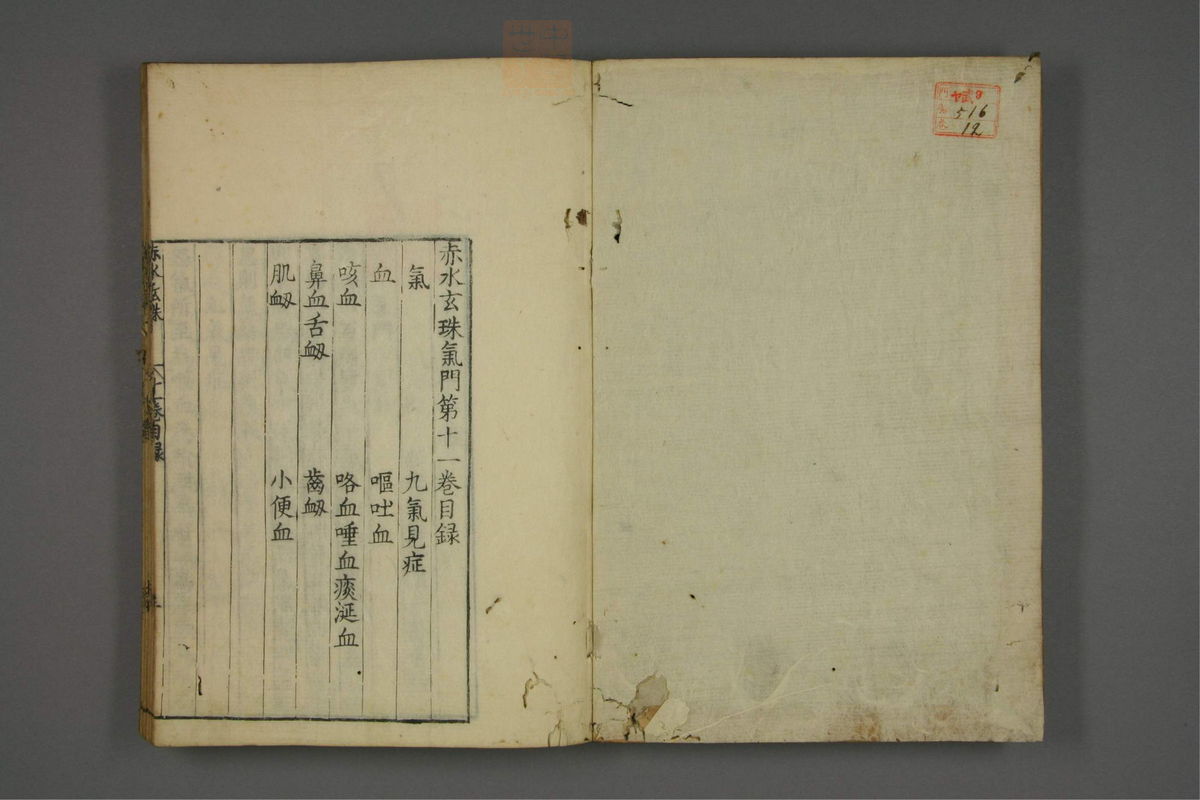 赤水玄珠氣門第十一卷目録
氣 九氣見症
血 嘔吐血
咳血 咯血唾血痰涎血
鼻血舌衂 齒衂
肌衂 小便血
赤水玄珠
十一卷目録
516
12